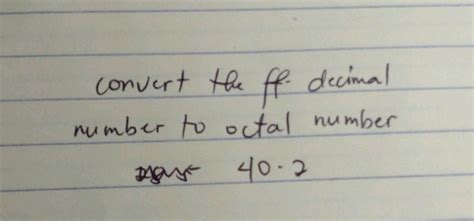 convert the ff. decimal
number to octal number
40.2